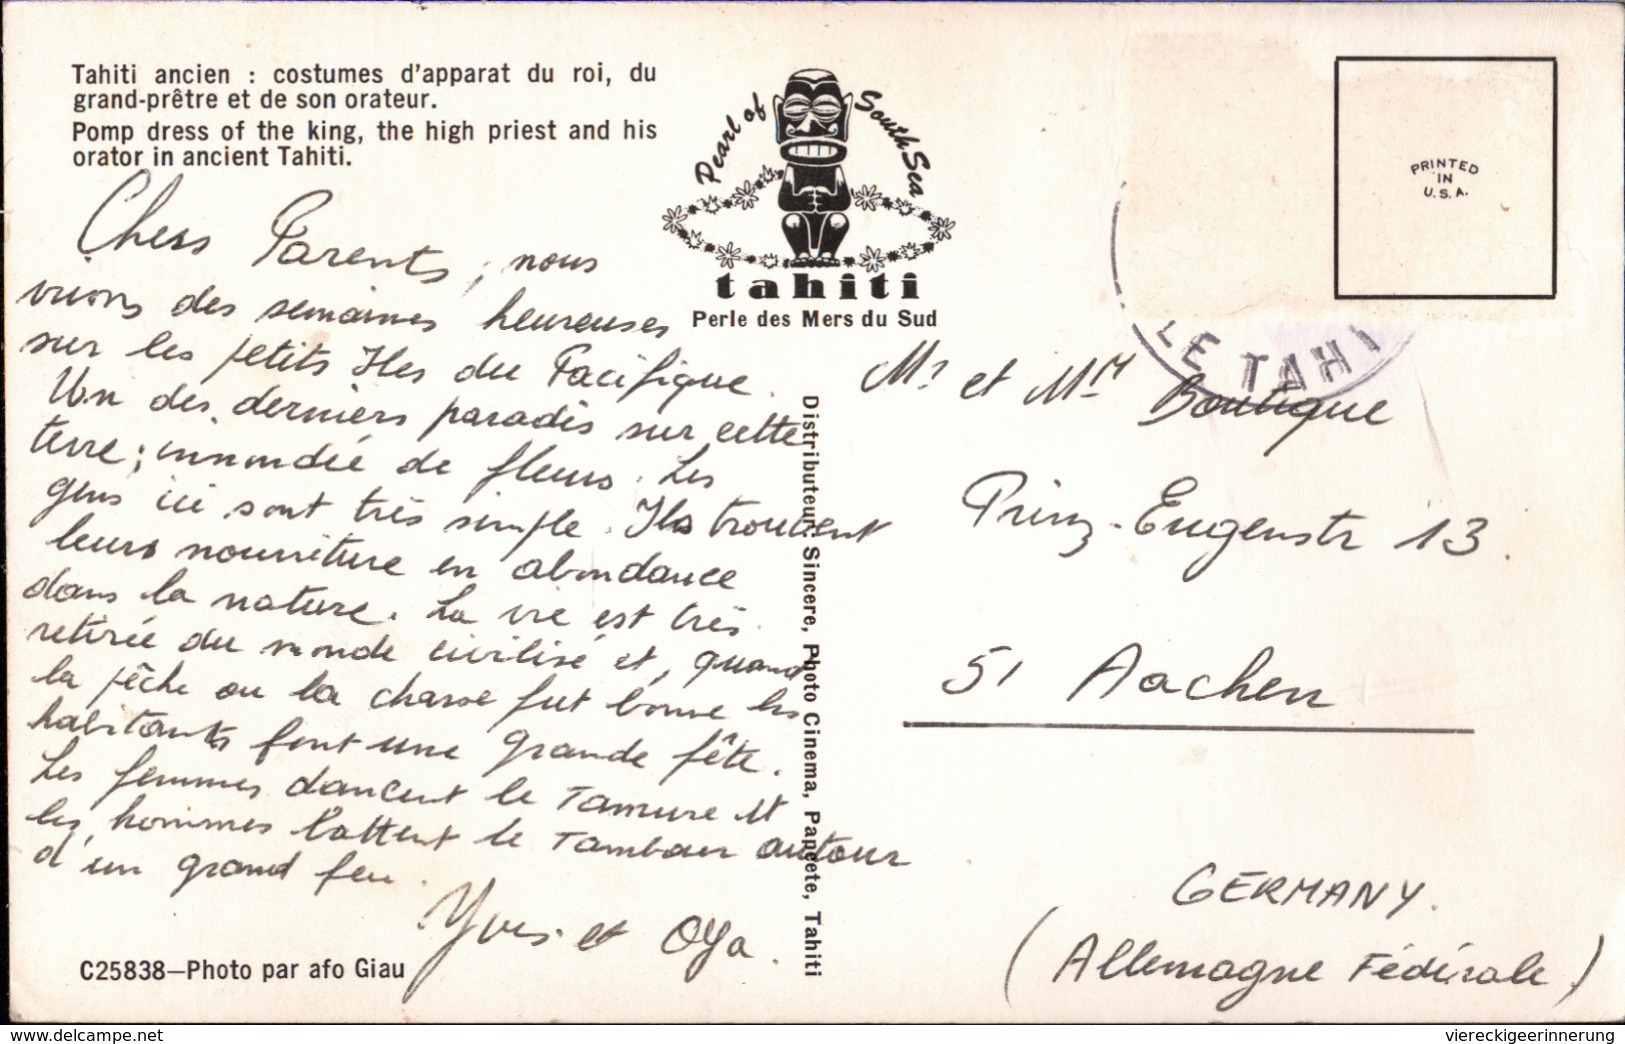 Tahiti ancien : costumes d'apparat du roi, du
grand-prêtre et de son orateur.
Pomp dress of the king, the high priest and his
orator in ancient Tahiti.
Pearl of South Sea
tahiti
Perle des Mers du Sud
PRINTED
IN
U.S.A.
LE TAHI
Chers Parents, nous
vivons des semaines heureuses
sur les petits Iles du Pacifique.
Un des derniers paradis sur cette
terre; innondée de fleurs. Les
gens ici sont très simple. Ils trouvent
leurs nourriture en abondance
dans la nature. La vie est très
retirée du monde civilisé et, quand
la pêche ou la chasse fut bonne les
habitants font une grande fête.
Les femmes dancent le Tamure et
les hommes battent le Tambour autour
d'un grand feu.
Yves et Oya.
C25838—Photo par afo Giau
Distributeur: Sincere, Photo Cinema, Papeete, Tahiti
Mr et Mme Boutique
Prinz-Eugenstr 13.
51 Aachen
GERMANY.
(Allemagne Fédérale)
delcampe.net
viereckigeerinnerung